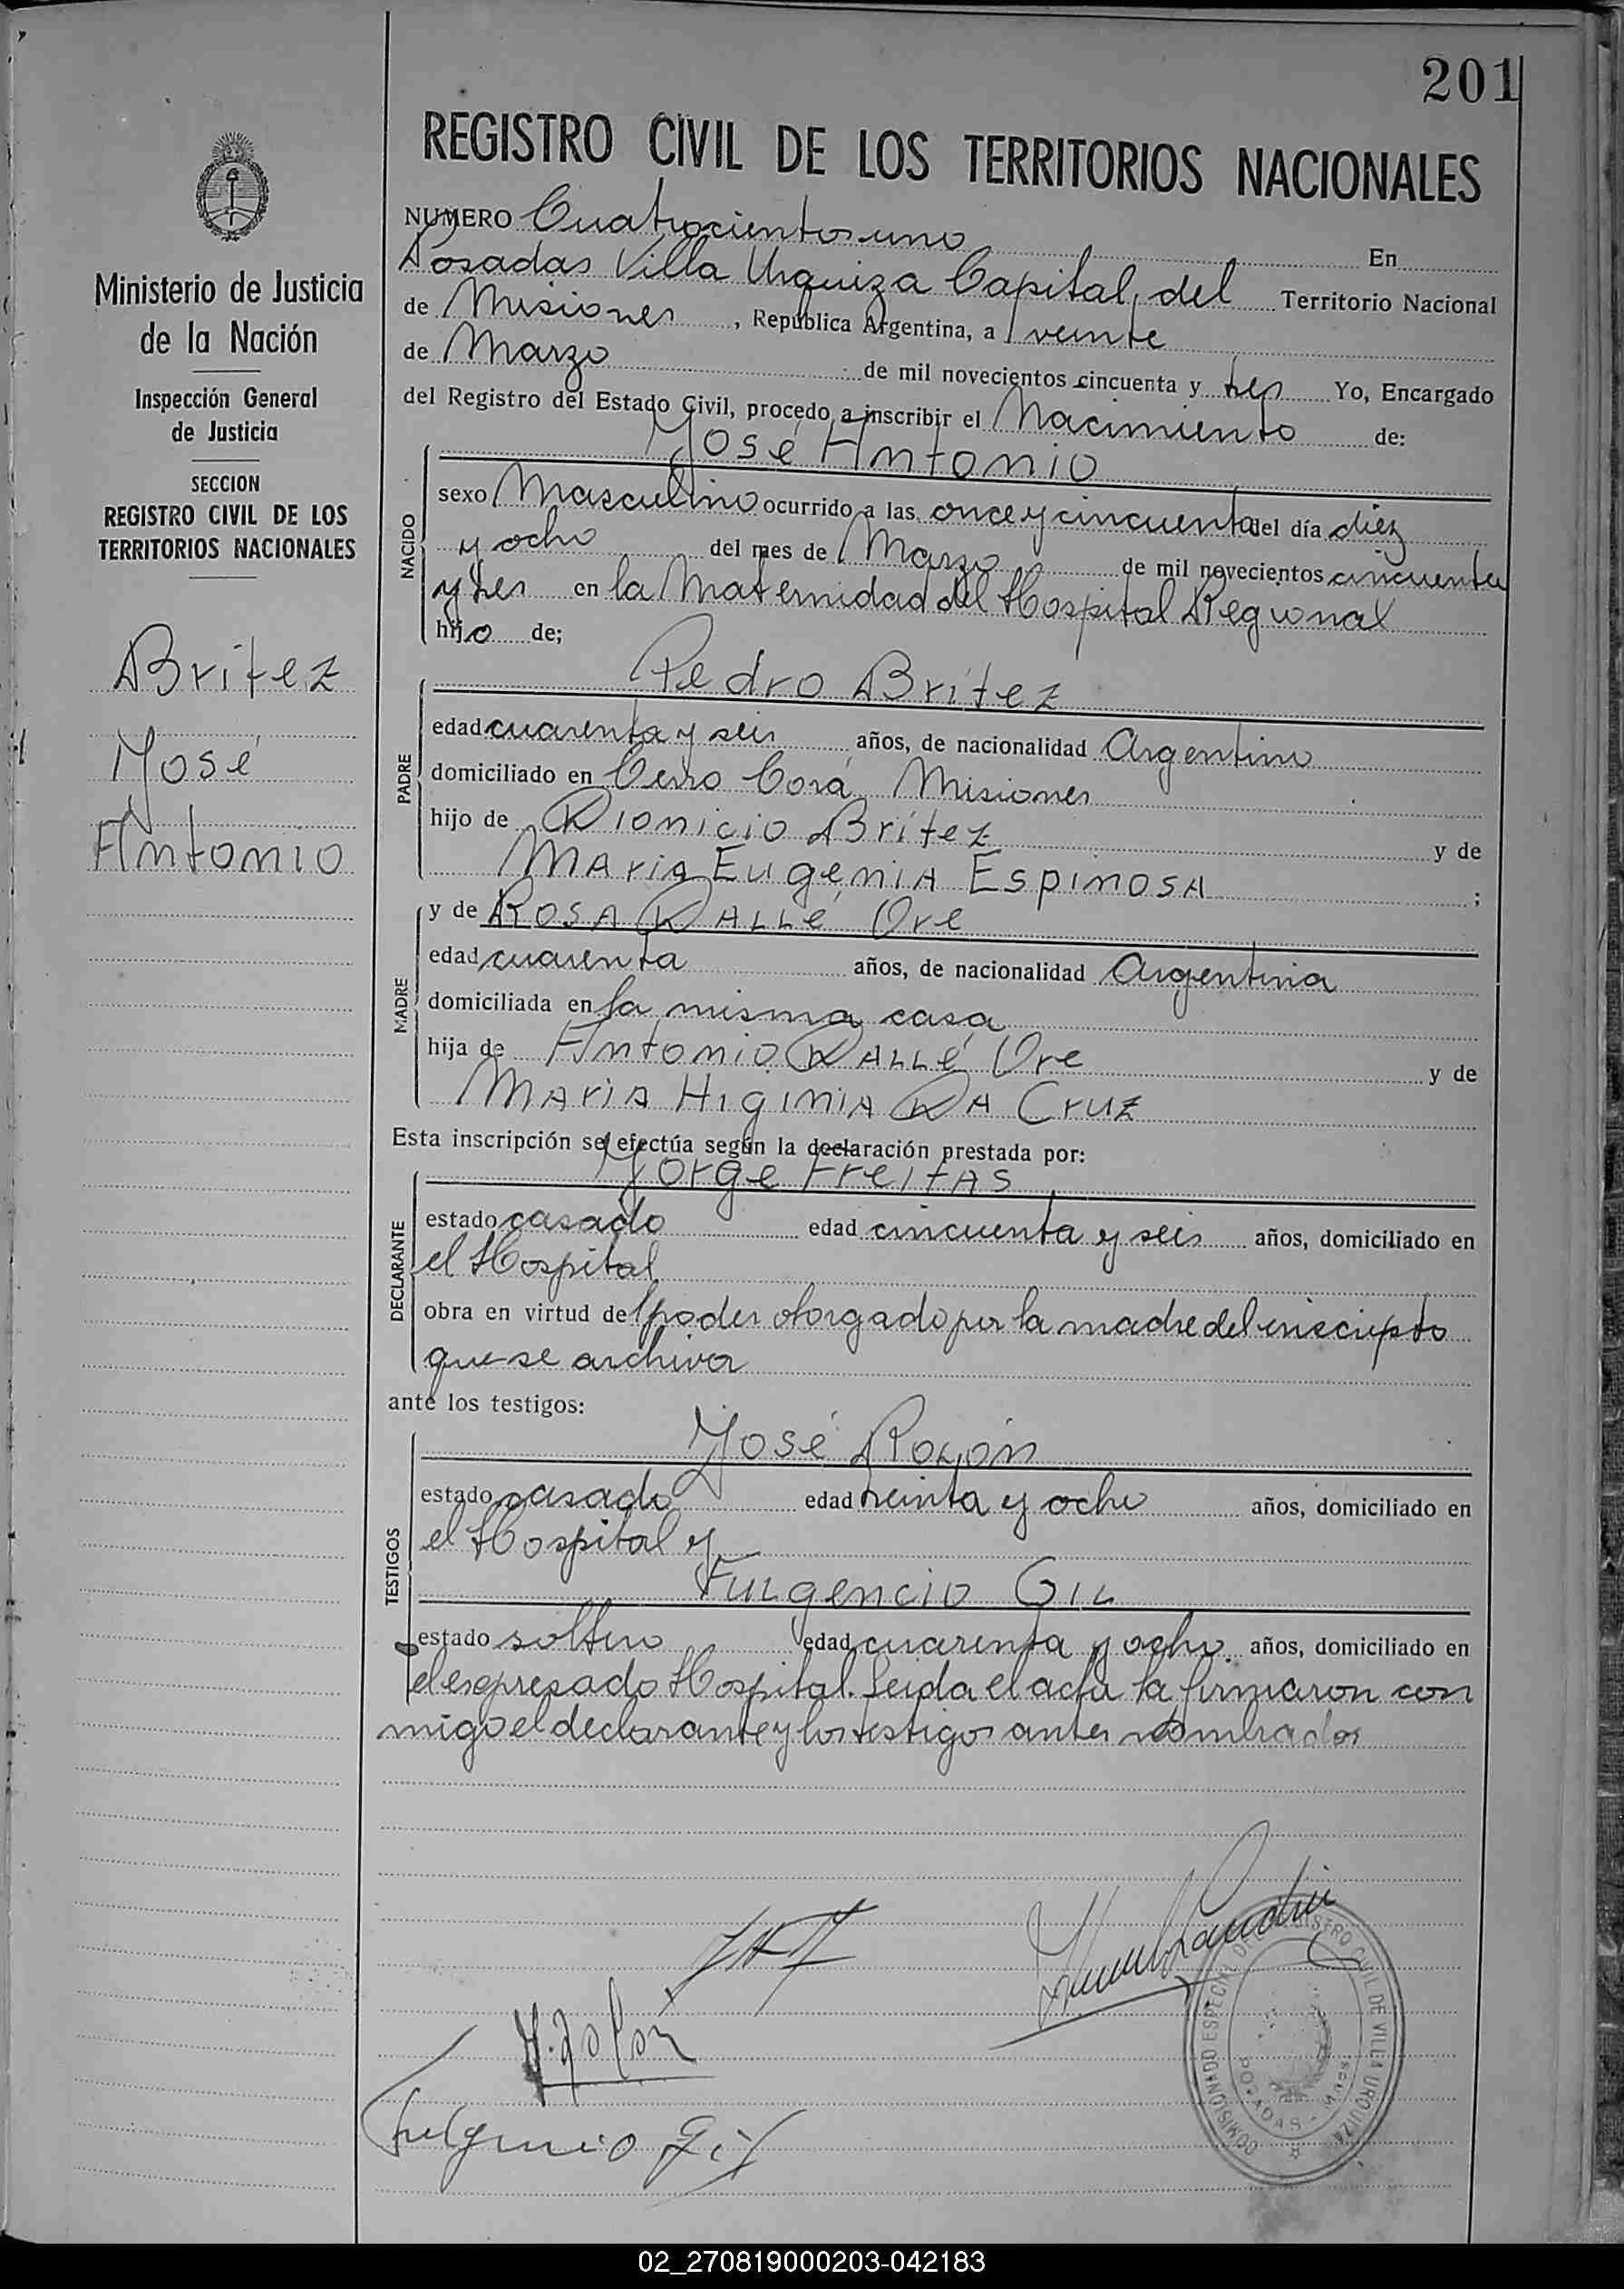 201
REGISTRO CIVIL DE LOS TERRITORIOS NACIONALES
Ministerio de Justicia
de la Nación
Inspección General
de Justicia
SECCION
REGISTRO CIVIL DE LOS
TERRITORIOS NACIONALES
Britez
José
Antonio
NUMERO Cuatrocientos uno En
Posadas Villa Urquiza Capital del Territorio Nacional
de Misiones, República Argentina, a veinte
de Marzo de mil novecientos cincuenta y tres Yo, Encargado
del Registro del Estado Civil, procedo a inscribir el Nacimiento de:
José Antonio
NACIDO
sexo Masculino ocurrido a las once y cincuenta del día diez
y ocho del mes de Marzo de mil novecientos cincuenta
y tres en la Maternidad del Hospital Regional
hijo de;
Pedro Britez
PADRE
edad cuarenta y seis años, de nacionalidad Argentino
domiciliado en Cerro Corá Misiones
hijo de Dionicio Britez y de
Maria Eugenia Espinosa ;
MADRE
y de Rosa Dallé Ore
edad cuarenta años, de nacionalidad Argentina
domiciliada en la misma casa
hija de Antonio Dallé Ore y de
Maria Higinia Da Cruz
Esta inscripción se efectúa según la declaración prestada por:
Jorge Freitas
DECLARANTE
estado casado edad cincuenta y seis años, domiciliado en
el Hospital
obra en virtud del poder otorgado por la madre del inscripto
que se archiva
ante los testigos:
José Rolón
TESTIGOS
estado casado edad treinta y ocho años, domiciliado en
el Hospital y
Fulgencio Gil
estado soltero edad cuarenta y ocho años, domiciliado en
el expresado Hospital. Leida el acta la firmaron con
migo el declarante y los testigos antes nombrados
J. Rolon
Fulgencio Gil
COMISIONADO ESPECIAL DEL REGISTRO CIVIL DE VILLA URQUIZA
POSADAS - Mnes
02_270819000203-042183